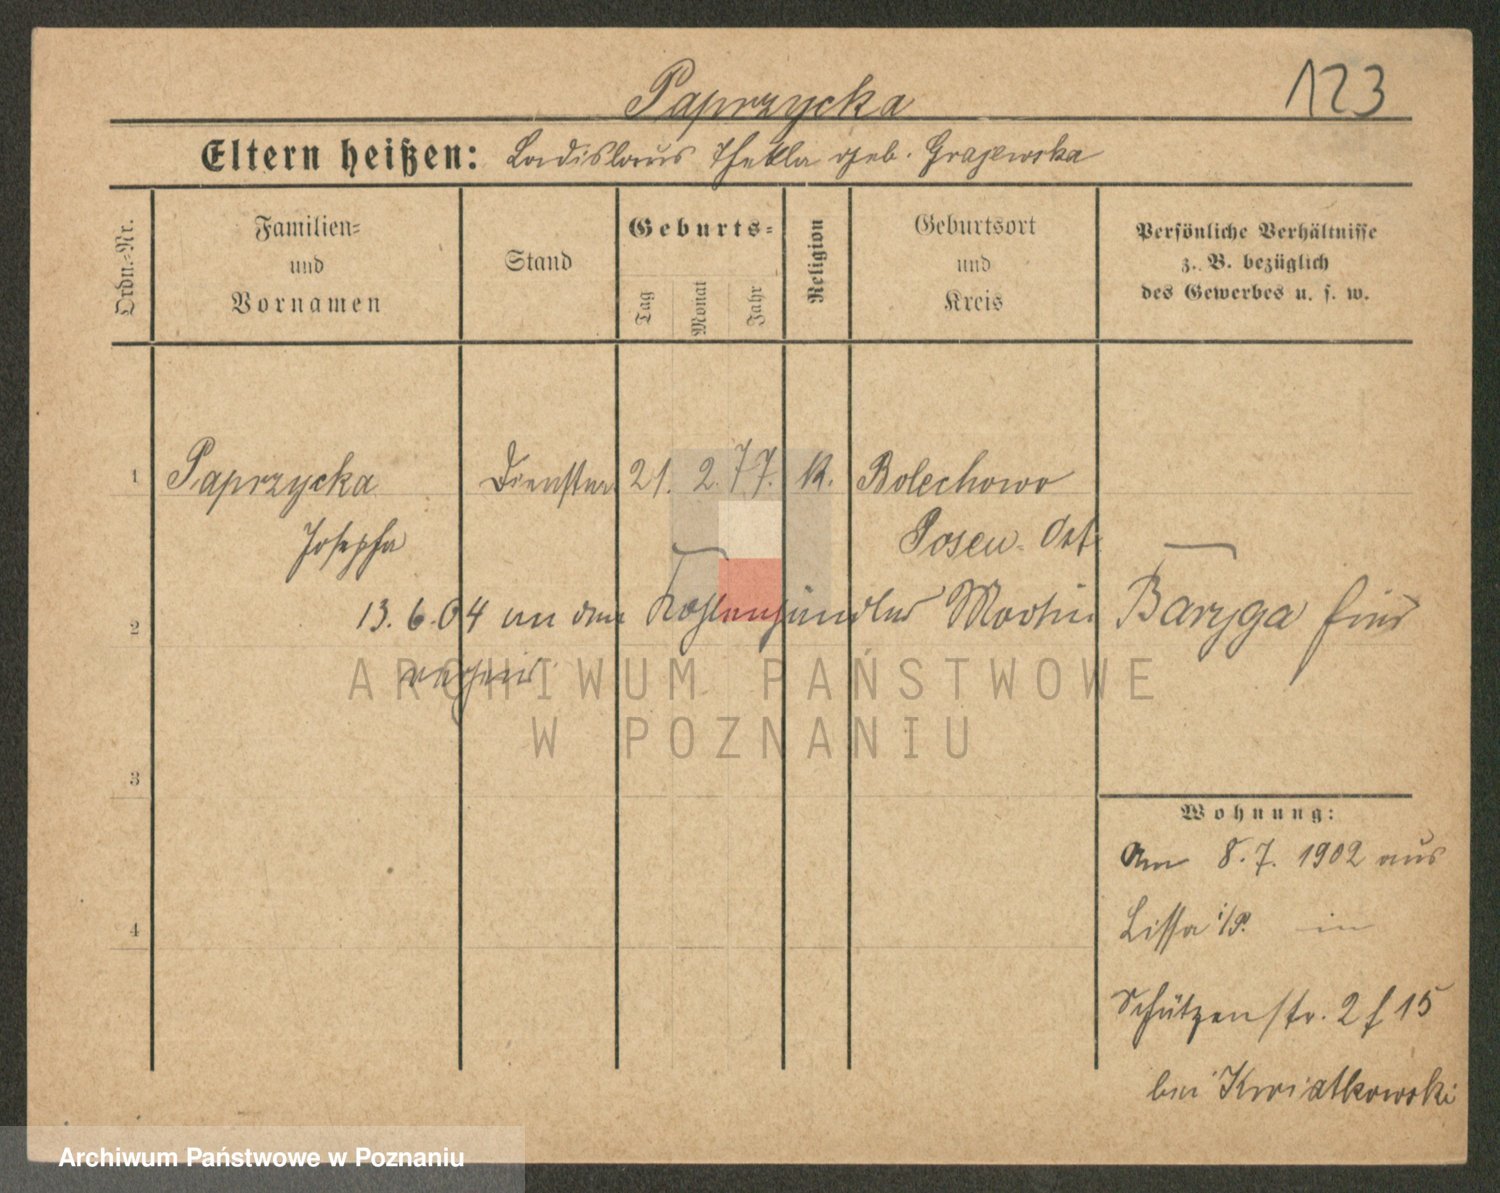 Paprzycka
123
Eltern heißen: Ladislaus Thekla geb. Grajewska
Ordn.-Nr.
Familien-
und
Vornamen
Stand
Geburts-
Tag
Monat
Jahr
Religion
Geburtsort
und
Kreis
Persönliche Verhältnisse
z. B. bezüglich
des Gewerbes u. s. w.
1 Paprzycka 21. 2. 77. K. Bolechowo
Josepha Posen Ost
2 13. 6. 04 an den Kohlenhändler Martin Baryga hier
ARCHIWUM PAŃSTWOWE
W POZNANIU
3
Wohnung:
Am 8. 7. 1902 aus
4 Lissa i/P. in
Schützenstr. 2 f 15
bei Kwiatkowski
Archiwum Państwowe w Poznaniu